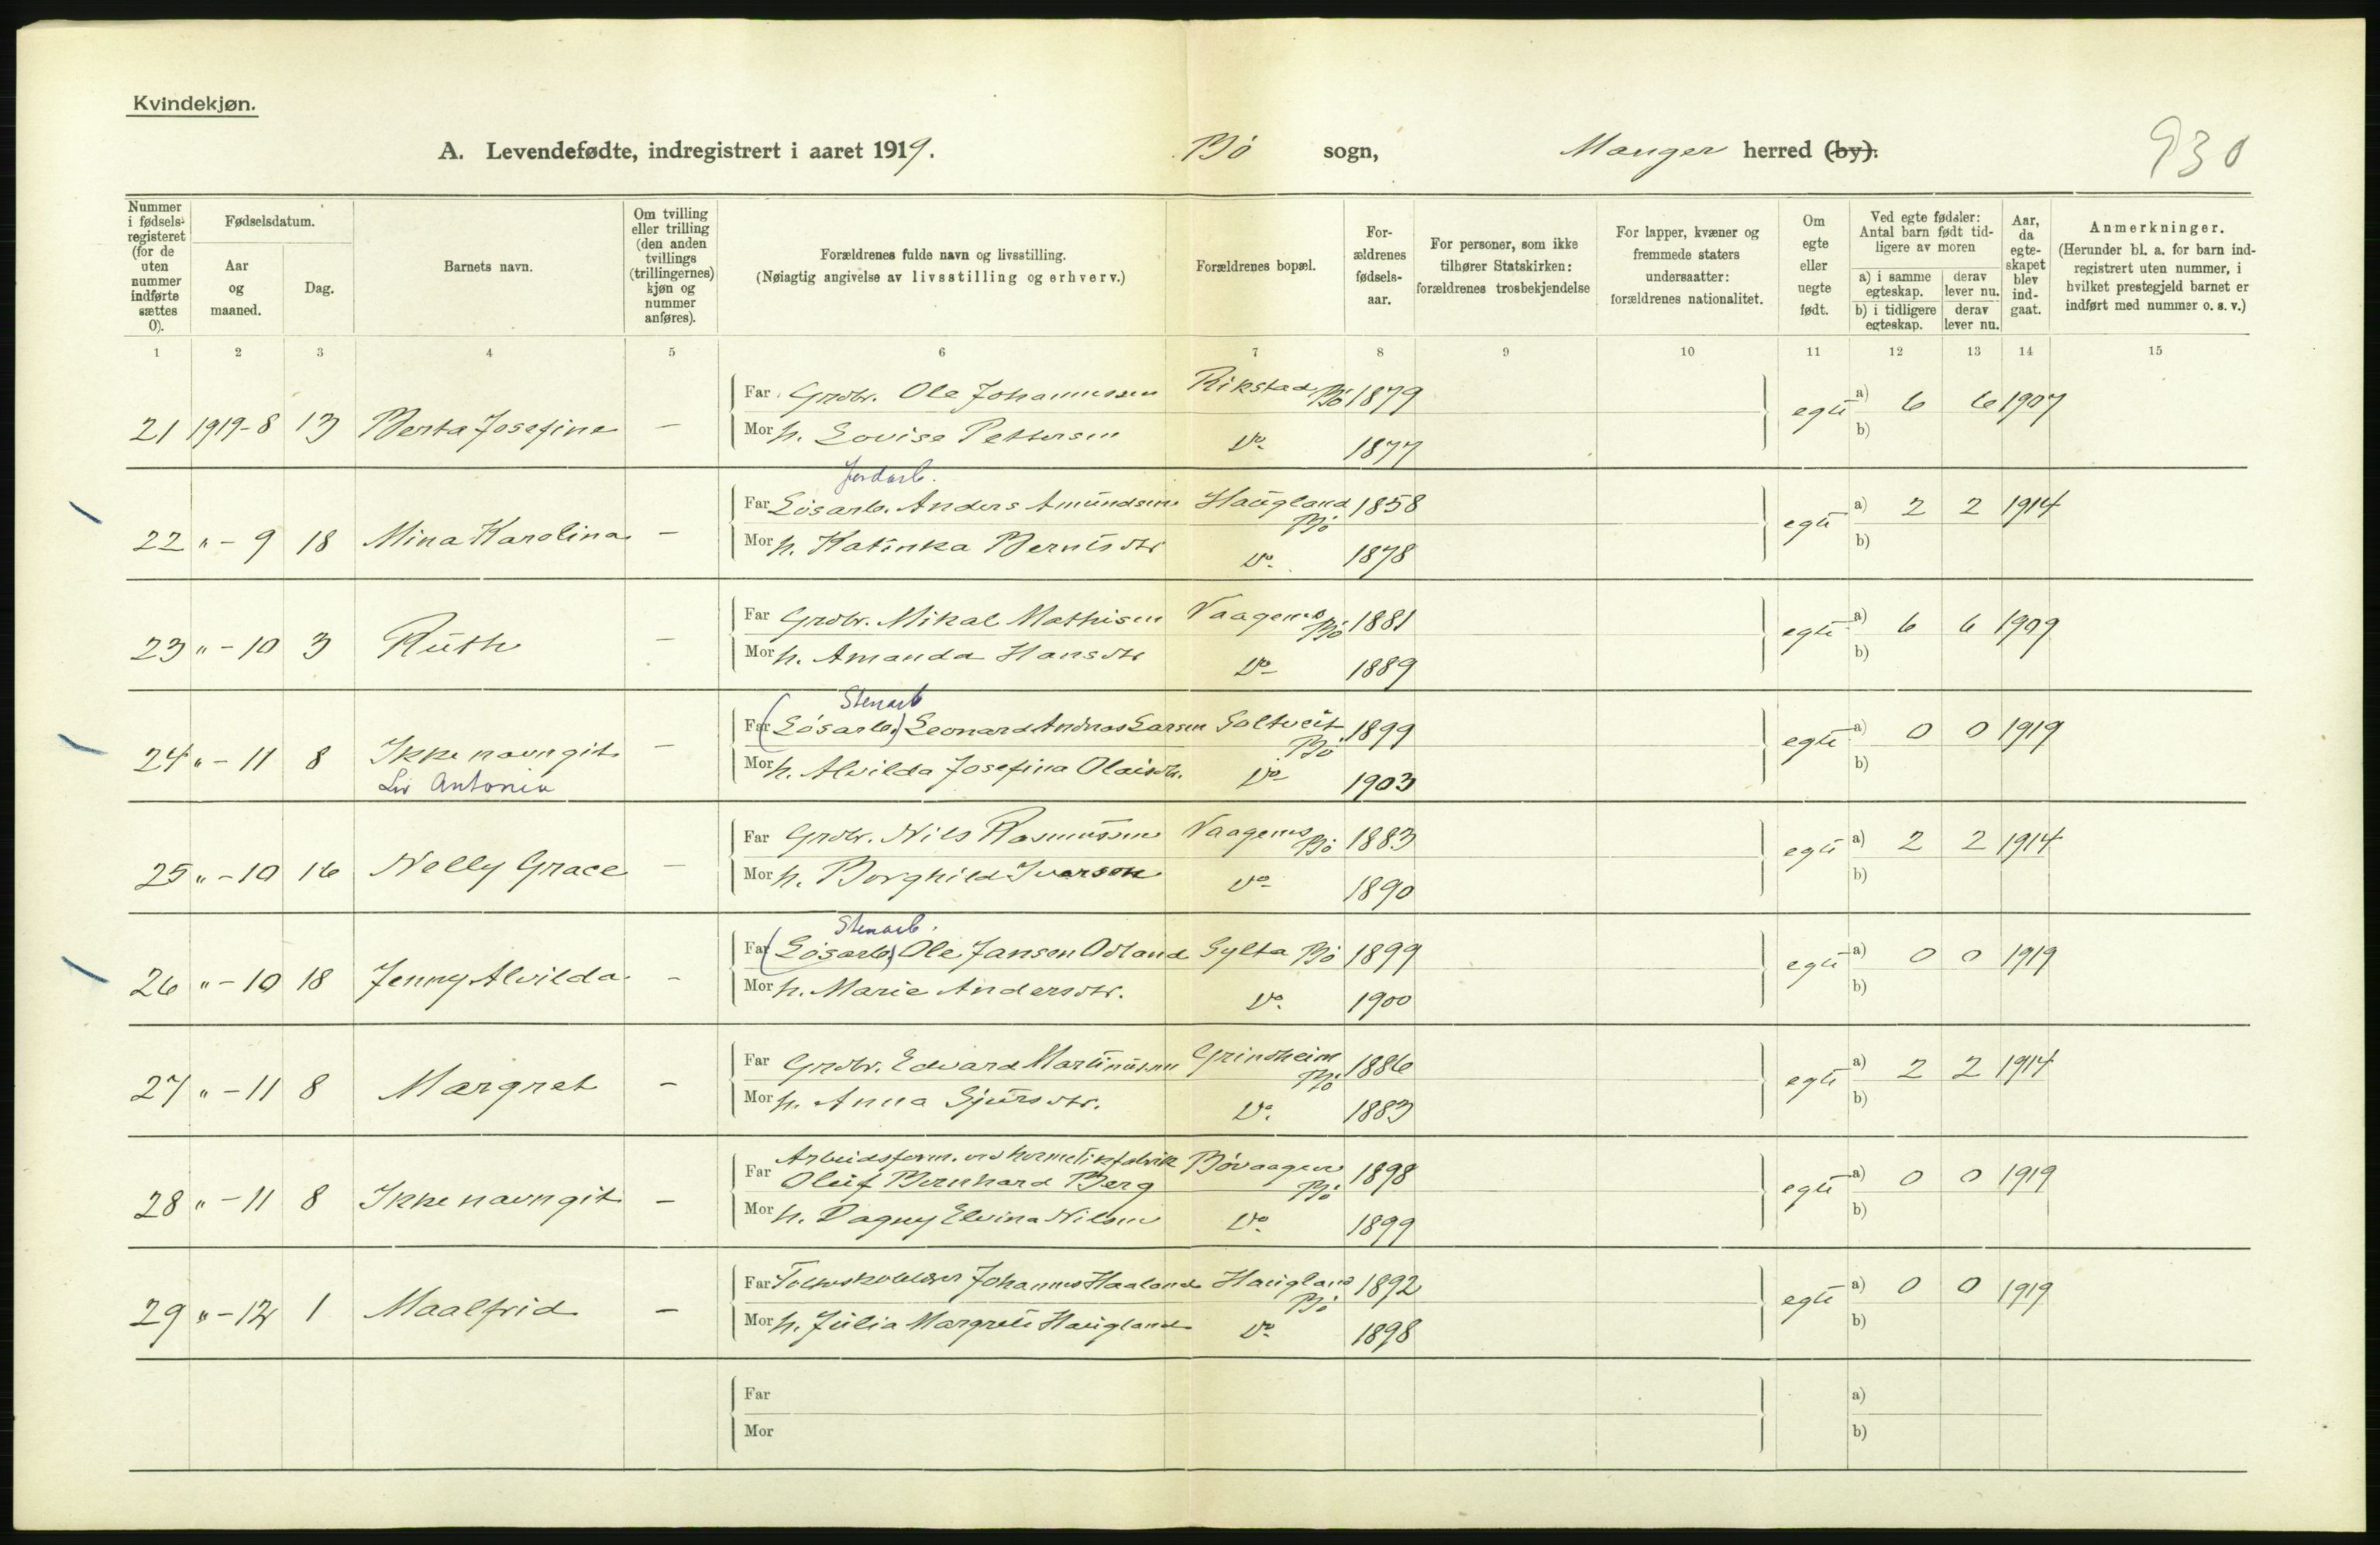 Kvindekjøn.
A. Levendefødte, indregistrert i aaret 1919. Bø sogn, Manger herred (by). 930
Nummer i fødselsregisteret (for de uten nummer indførte sættes 0).
Fødselsdatum.
Aar og maaned.
Dag.
Barnets navn.
Om tvilling eller trilling (den anden tvillings (trillingernes) kjøn og nummer anføres).
Forældrenes fulde navn og livsstilling.
(Nøiagtig angivelse av livsstilling og erhverv.)
Forældrenes bopæl.
Forældrenes fødselsaar.
For personer, som ikke tilhører Statskirken: forældrenes trosbekjendelse
For lapper, kvæner og fremmede staters undersaatter: forældrenes nationalitet.
Om egte eller uegte født.
Ved egte fødsler: Antal barn født tidligere av moren
a) i samme egteskap. derav lever nu.
b) i tidligere egteskap. derav lever nu.
Aar, da egteskapet blev indgaat.
Anmerkninger.
(Herunder bl. a. for barn indregistrert uten nummer, i hvilket prestegjeld barnet er indført med nummer o. s. v.)
1 2 3 4 5 6 7 8 9 10 11 12 13 14 15
Far Grdbr. Ole Johannessen Rikstad Bø 1879
21 1919-8 13 Berta Josefine - egte a) 6 6 1907
Mor h. Lovise Pettersen Do. 1877 b)
Jordarb.
Far Løsarb. Anders Amundsen Haugland Bø 1858
22 " - 9 18 Mina Karolina - egte a) 2 2 1914
Mor h. Katinka Berntsdtr Do. 1878 b)
Far Grdbr. Mikal Mathisen Vaagenes Bø 1881
23 " - 10 3 Ruth - egte a) 6 6 1909
Mor h. Amanda Hansdtr Do 1889 b)
Stenarb
Far (Løsarb.) Leonard Andreas Larsen Soltveit Bø 1899
24 " - 11 8 Ikke navngit - egte a) 0 0 1919
Liv Antonie
Mor h. Alvilda Josefina Olaisdtr. Do 1903 b)
Far Grdbr. Nils Rasmussen Vaagenes Bø 1883
25 " - 10 16 Nelly Grace - egte a) 2 2 1914
Mor h. Borghild Iverson Do 1890 b)
Stenarb.
Far (Løsarb.) Ole Jansen Odland Sylta Bø 1899
26 " - 10 18 Jenny Alvilda - egte a) 0 0 1919
Mor h. Marie Andersdtr. Do. 1900 b)
Far Grdbr. Edvard Martinussen Grindheim Bø 1886
27 " - 11 8 Margret - egte a) 2 2 1914
Mor h. Anna Sjursdtr. Do. 1883 b)
Arbeidsform. ved hermetikfabrik Bøvaagen
Far Oluf Bernhard Berg Bø 1898
28 " - 11 8 Ikke navngit - egte a) 0 0 1919
Mor h. Dagny Elvina Nilsen Do. 1899 b)
Far Johannes Haaland Haugland Bø 1892
29 " - 12 1 Maalfrid - egte a) 0 0 1919
Mor h. Julia Margrete Haugland Do. 1898 b)
Far a)
Mor b)